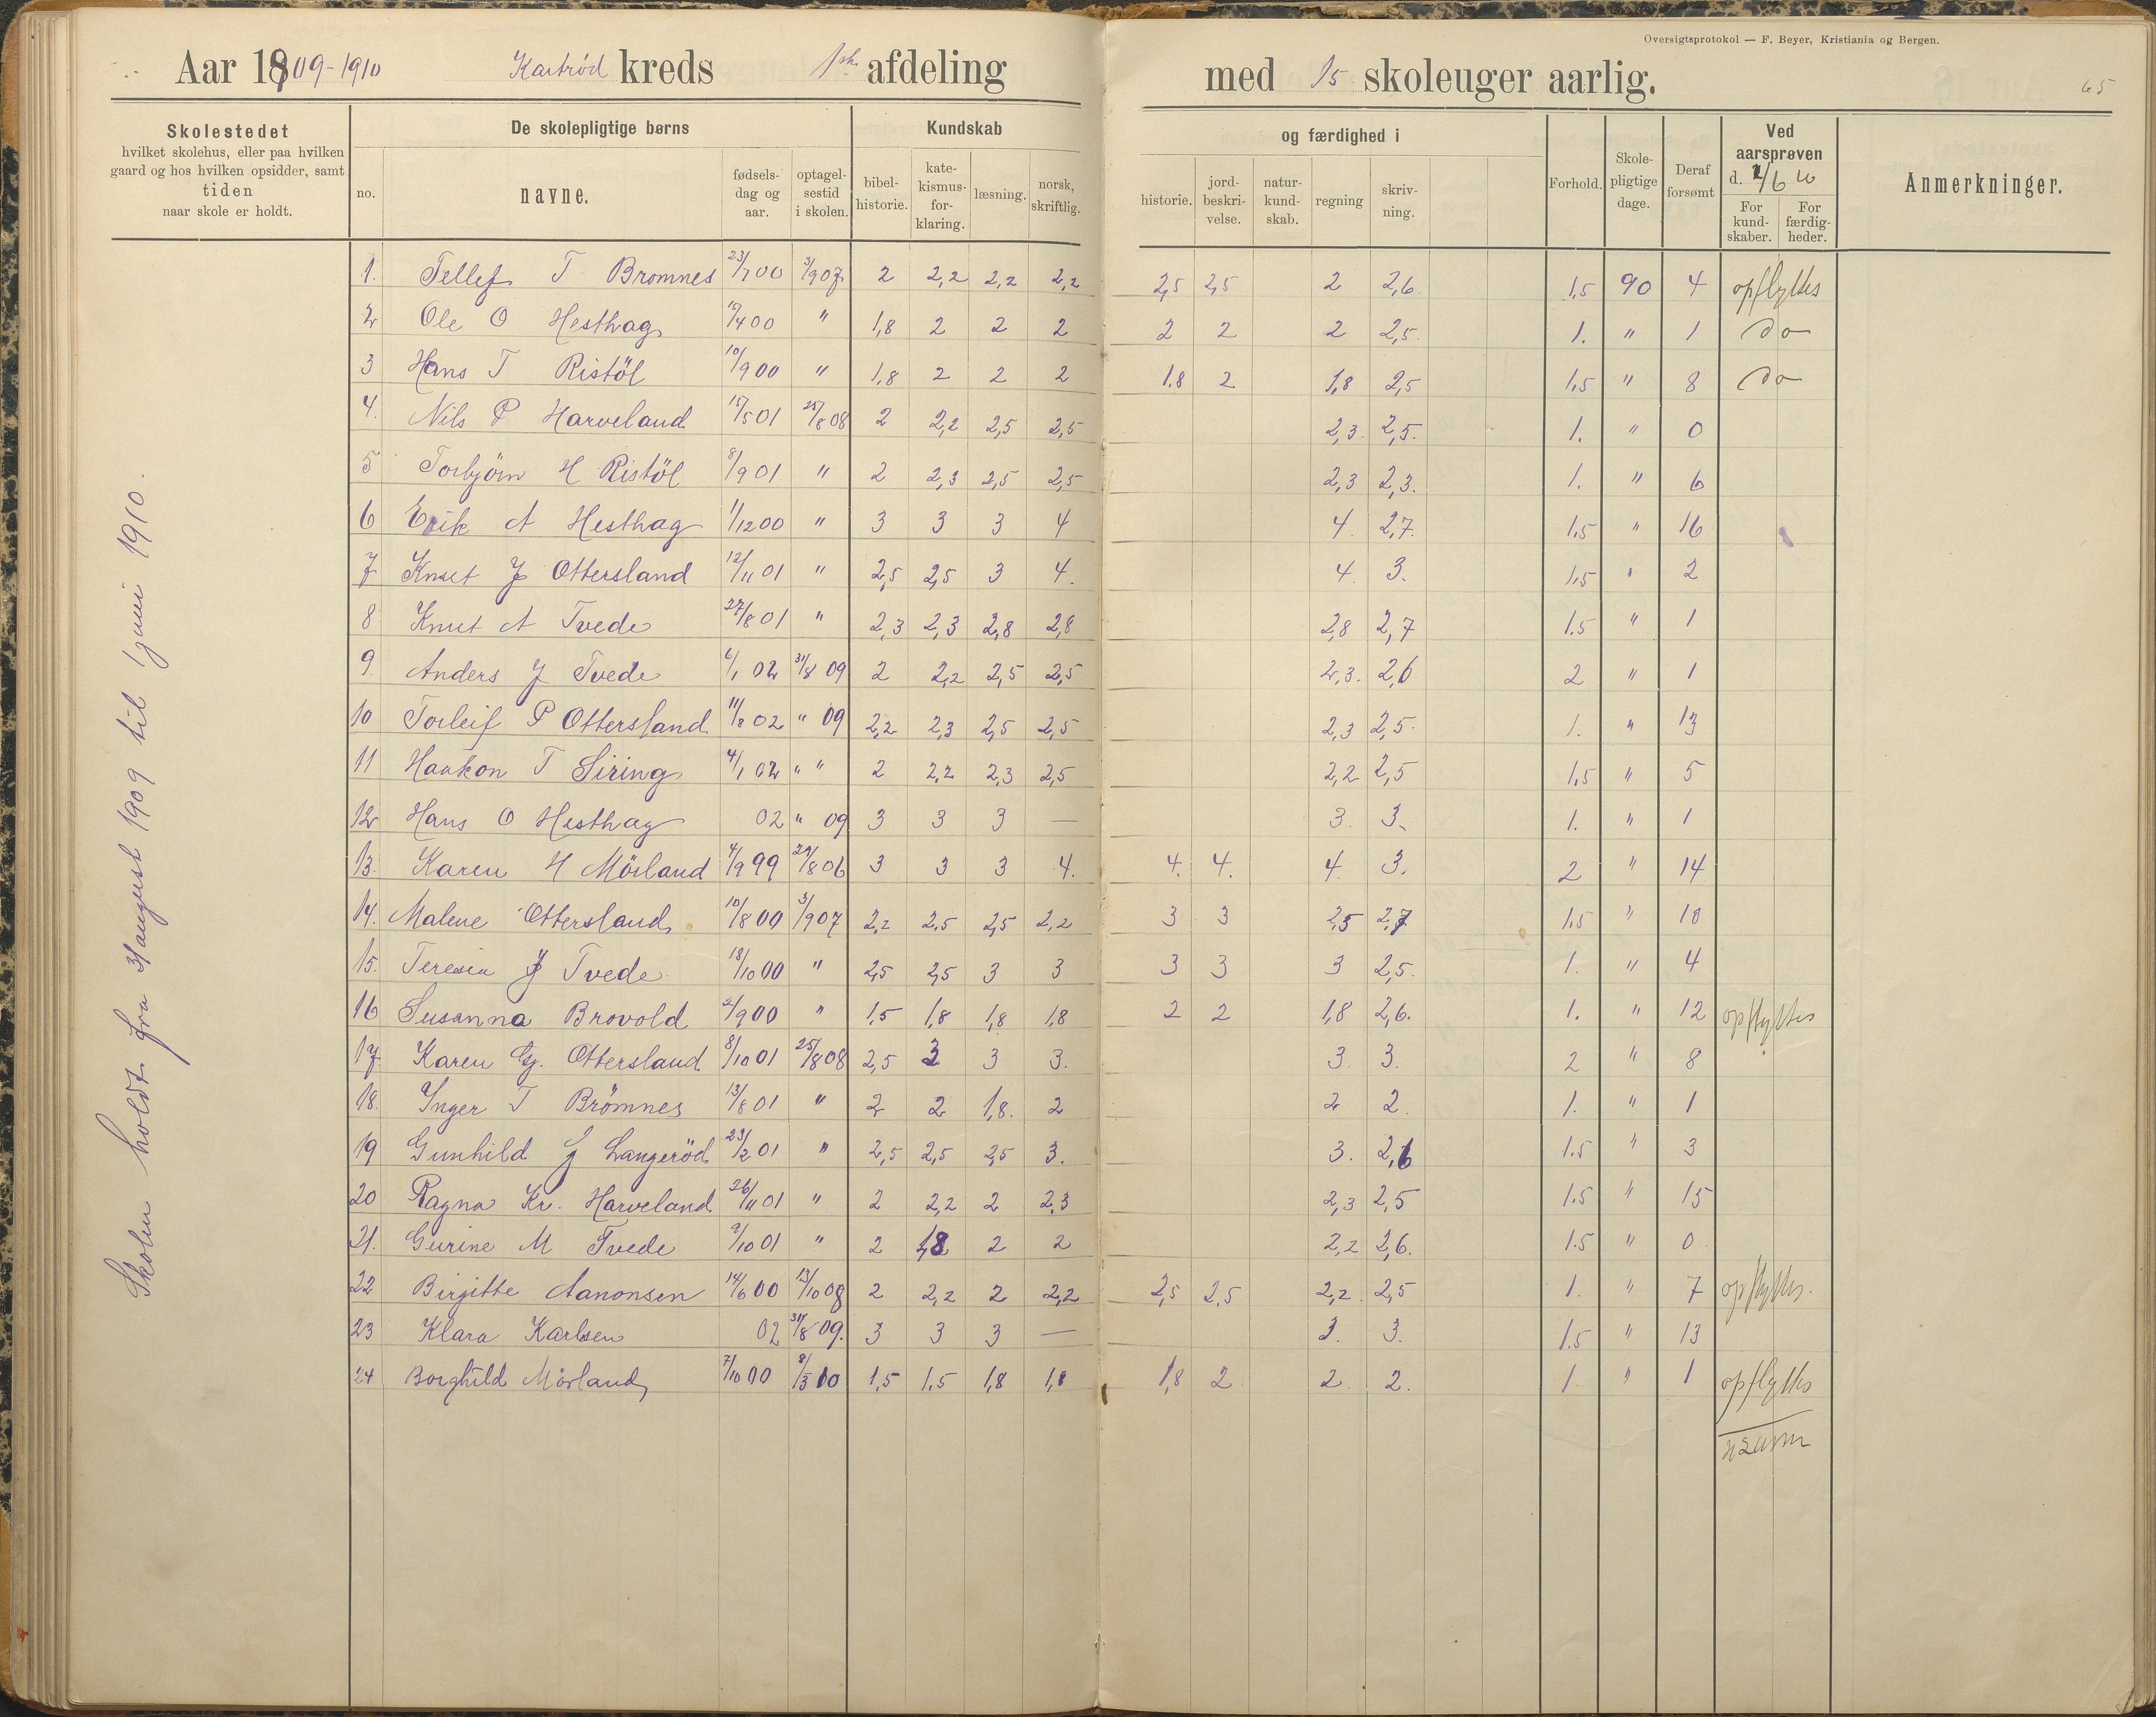 Oversigtsprotokol — F. Beyer, Kristiania og Bergen.
Aar 1909-1910 Kastrød kreds 1ste afdeling med 15 skoleuger aarlig.
65
Skolestedet
hvilket skolehus, eller paa hvilken
gaard og hos hvilken opsidder, samt
tiden
naar skole er holdt.
De skolepligtige børns
no.
navne.
fødsels-
dag og
aar.
optagel-
sestid
i skolen.
Kundskab
bibel-
historie.
kate-
kismus-
for-
klaring.
læsning.
norsk,
skriftlig.
og færdighed i
historie.
jord-
beskri-
velse.
natur-
kund-
skab.
regning
skriv-
ning.
Forhold.
Skole-
pligtige
dage.
Deraf
forsømt
Ved
aarsprøven
d. 2/6 10
For
kund-
skaber.
For
færdig-
heder.
Anmerkninger.
Skolen holdt fra 31 august 1909 til 1 juni 1910.
1. Tellef T Bromnes 23/7 00 3/9 07 2 2,2 2,2 2,2 2,5 2,5 2 2,6 1,5 90 4 opflyttes
2 Ole O Hesthag 17/4 00 " 1,8 2 2 2 2 2 2 2,5. 1. " 1 do
3 Hans T Ristöl 10/9 00 " 1,8 2 2 2 1,8 2 1,8 2,5 1,5 " 8 do
4. Nils P Harveland 15/5 01 25/8 08 2 2,2 2,5 2,5 2,3. 2,5. 1. " 0
5 Torbjörn H Ristöl 8/9 01 " 2 2,3 2,5 2,5 2,3 2,3. 1. " 6
6 Erik A Hesthag 1/12 00 " 3 3 3 4 4. 2,7. 1,5 " 16
7 Knut J Ottersland 12/11 01 " 2,5 2,5 3 4. 4. 3. 1,5 " 2
8 Knut A Tvede 27/8 01 " 2,3 2,3 2,8 2,8 2,8 2,7 1,5 " 1
9. Anders J Tvede 6/1 02 31/8 09 2 2,2 2,5 2,5 2,3. 2,6 2 " 1
10 Torleif P Ottersland 11/8 02 " 09 2,2 2,3 2,5 2,5 2,3 2,5. 1. " 13
11 Haakon T Siring 4/1 02 " " 2 2,2 2,3 2,5 2,2 2,5 1,5 " 5
12 Hans O Hesthag 02 " 09 3 3 3 — 3. 3. 1. " 1
13. Karen H Mörland 4/9 99 29/8 06 3 3 3 4. 4. 4. 4. 3. 2 " 14
14. Malene Ottersland 10/8 00 3/9 07 2,2 2,5 2,5 2,2 3 3 2,5 2,7 1,5 " 10
15. Teresia J Tvede 18/10 00 " 2,5 2,5 3 3 3 3 3 2,5. 1. " 4
16 Susanna Brovold 2/9 00 " 1,5 1,8 1,8 1,8 2 2 1,8 2,6. 1. " 12 opflyttes
17. Karen G. Ottersland 8/10 01 25/8 08 2,5 3 3 3. 3. 3. 2 " 8
18. Inger T Brömnes 13/8 01 " 2 2 1,8. 2 2 2. 1. " 1
19 Gunhild J Langeröd 23/2 01 " 2,5 2,5 2,5 3. 3. 2,6 1.5 " 3
20 Ragna Kr. Harveland 26/11 01 " 2 2,2 2 2,3 2,3 2,5 1.5 " 15
21. Gurine M Tvede 9/10 01 " 2 1,8 2 2 2,2 2,6. 1.5 " 0
22 Birgitte Aanonsen 14/6 00 13/10 08 2 2,2 2 2,2 2,5 2,5 2,2 2,5 1. " 7 opflyttes.
23 Klara Karlsen 02 31/8 09. 3 3 3 — 3. 3. 1.5 " 13
24 Borghild Mörland 7/10 00 8/3 10 1,5 1,5 1,8 1,8 1,8 2 2. 2. 1. " 1 opflyttes